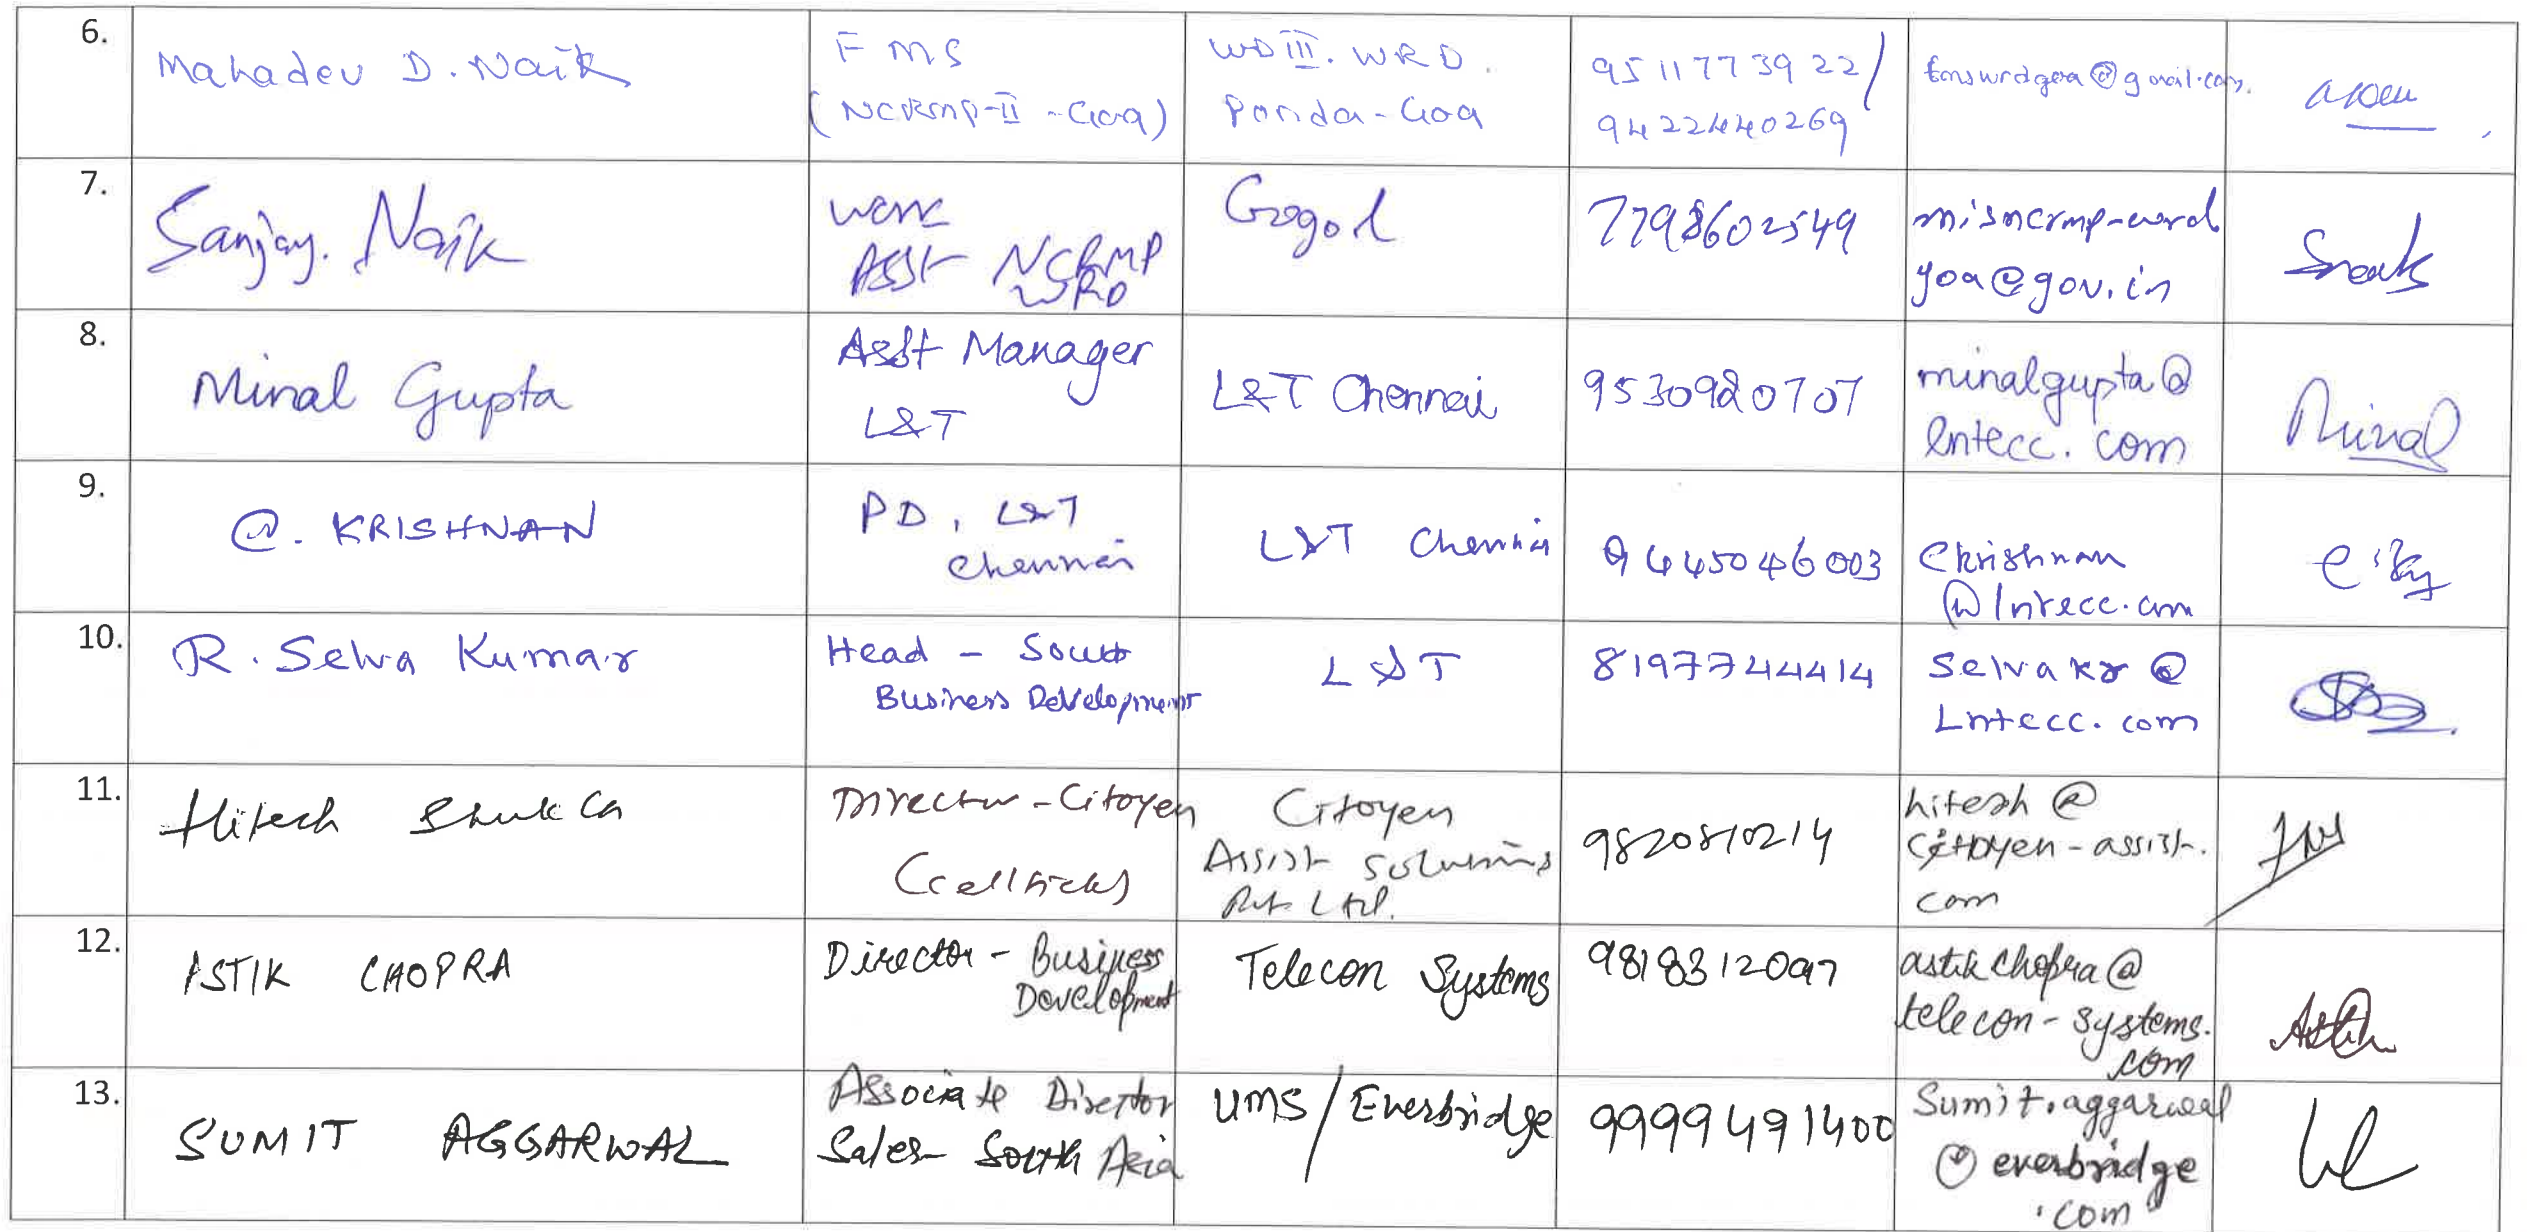 6.
Mahadev D. Naik
FMS
(NCRMP-II-Goa)
WD III. WRD.
Ponda-Goa
9511773922/
9422440269
fmswrdgoa@gmail.com.
7.
Sanjay. Naik
work
Asst NCRMP
WRD
Gogol
7798602549
misncrmp-wrd
goa@gov.in
8.
Minal Gupta
Asst Manager
L&T
L&T Chennai
9530920707
minalgupta@
lntecc.com
Minal
9.
e. KRISHNAN
PD, L&T
Chennai
L&T Chennai
9445046003
ekrishnan
@lntecc.com
10.
R. Selva Kumar
Head - South
Business Development
L&T
8197744414
selvakr@
Lntecc.com
11.
Hitesh Shukla
Director-Citoyen
(cellticks)
Citoyen
Assist Solutions
Pvt Ltd.
9820810214
hitesh@
citoyen-assist.
com
12.
ASTIK CHOPRA
Director - Business
Development
Telecon Systems
9818312097
astikchopra@
telecon-systems.
com
Astik
13.
SUMIT AGGARWAL
Associate Director
Sales- South Asia
UMS/Everbridge
9999491400
Sumit.aggarwal
@everbridge
.com